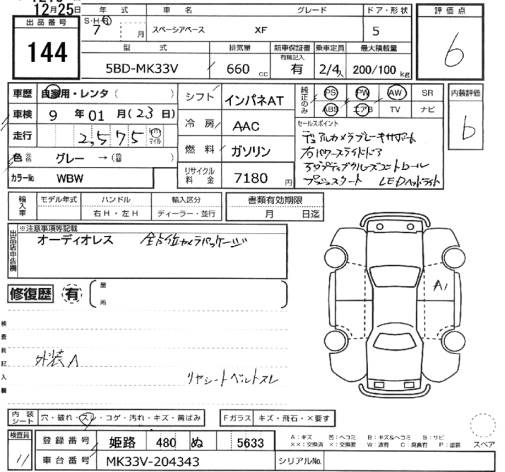 12月25日
年式 車名 グレード ドア・形状 評価点
出品番号 S・H・R 7 月 スペーシアベース XF 5 6
144
型式 排気量 新車保証書 乗車定員 最大積載量
5BD-MK33V 660 cc 有 2/4人 200/100 kg
車歴 自家用・レンタ( ) シフト インパネAT 純正のみ PS PW AW SR 内装評価
車検 9年 01月(23日) ABS エアB TV ナビ
走行 2,575 km マイル 冷房 AAC セールスポイント b
デュアルカメラブレーキサポート
色 グレー →(替) 燃料 ガソリン 右パワースライドドア
アダプティブクルーズコントロール
カラーNo WBW リサイクル料金 7180 円 プッシュスタート LEDヘッドライト
輸入車 モデル年式 ハンドル 輸入区分 書類有効期限
右H・左H ディーラー・並行 月 日迄
出品店申告欄 ※注意事項等記載
オーディオレス 全方位カメラパッケージ
修復歴 有 箇所 A1
検査員記入欄
外装A
リヤシートベルトスレ
内装シート 穴・破れ・スレ・コゲ・汚れ・キズ・黄ばみ Fガラス キズ・飛石・×要す スペア
検査員 11 登録番号 姫路 480 ぬ 5633
車台番号 MK33V-204343 シリアルNo.